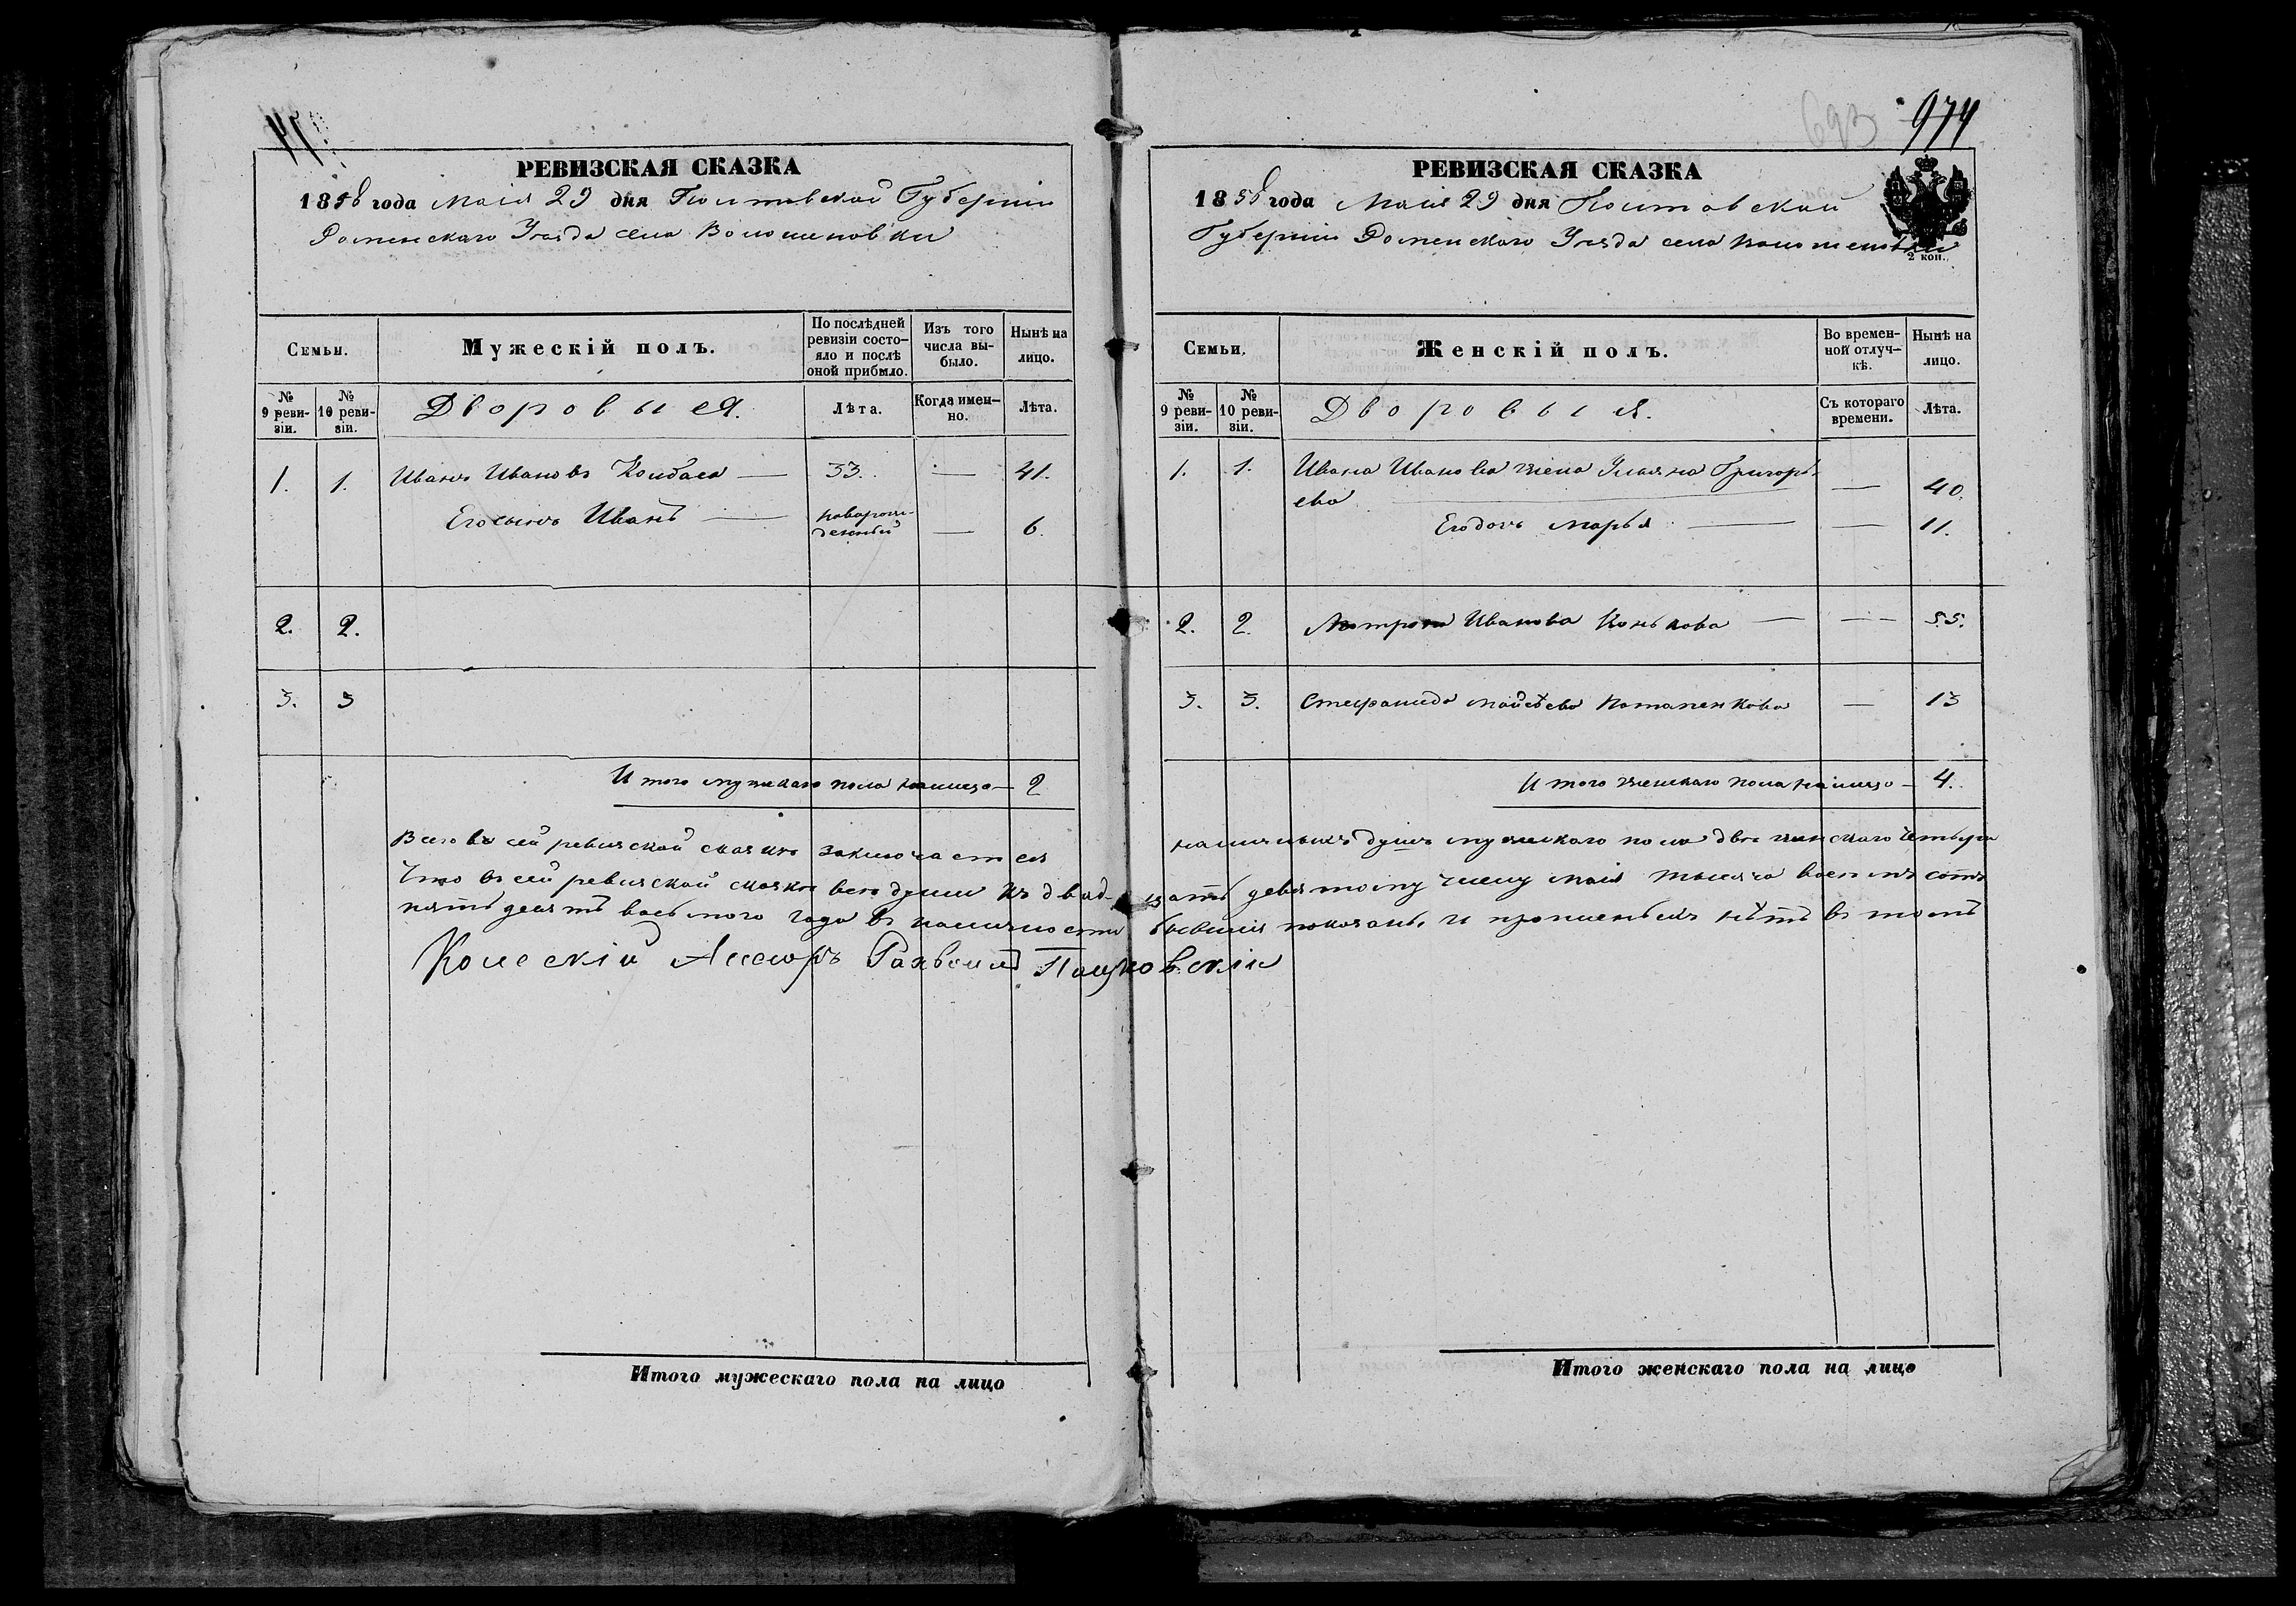 РЕВИЗСКАЯ СКАЗКА
1858 года Маія 29 дня Полтавской Губерніи
Роменскаго Уезда села Волошиновки
Семьи.
Мужескій полъ.
По послѣдней ревизіи состояло и послѣ оной прибыло.
Изъ того числа выбыло.
Нынѣ на лицо.
№ 9 ревизіи.
№ 10 ревизіи.
Дворовыя.
Лѣта.
Когда именно.
Лѣта.
1. 1. Иванъ Ивановъ Колбаса — 33. — 41.
Его сынъ Иванъ — новорожденный — 6.
2. 2.
3. 3
Итого мужскаго пола налицо — 2
Всего въ сей ревизской сказкѣ заключается
Что въ сей ревизской сказкѣ все души къ двад-
пятьдесятъ восьмого года въ наличности
Колескій Ассесоръ
Итого мужескаго пола на лицо
693 974
РЕВИЗСКАЯ СКАЗКА
1858 года Маія 29 дня Полтавской
Губерніи Роменскаго Уезда села Волошиновки
2 коп.
Семьи.
Женскій полъ.
Во временной отлучкѣ.
Нынѣ на лицо.
№ 9 ревизіи.
№ 10 ревизіи.
Дворовыя.
Съ котораго времени.
Лѣта.
1. 1. Ивана Иванова жена Ульяна Григорь-
ева — 40.
Его дочь Марья — — 11.
2. 2. Матрона Иванова Конькова — — 55.
3. 3. Стефанида Мойсѣева Потапенкова — 13
Итого женскаго пола налицо — 4.
наличныхъ душъ мужескаго пола двѣ женскаго четыре
цать девятому числу маія тысяча восемъ сотъ
бывшія показаны и прописныхъ нѣтъ в томъ
Итого женскаго пола на лицо